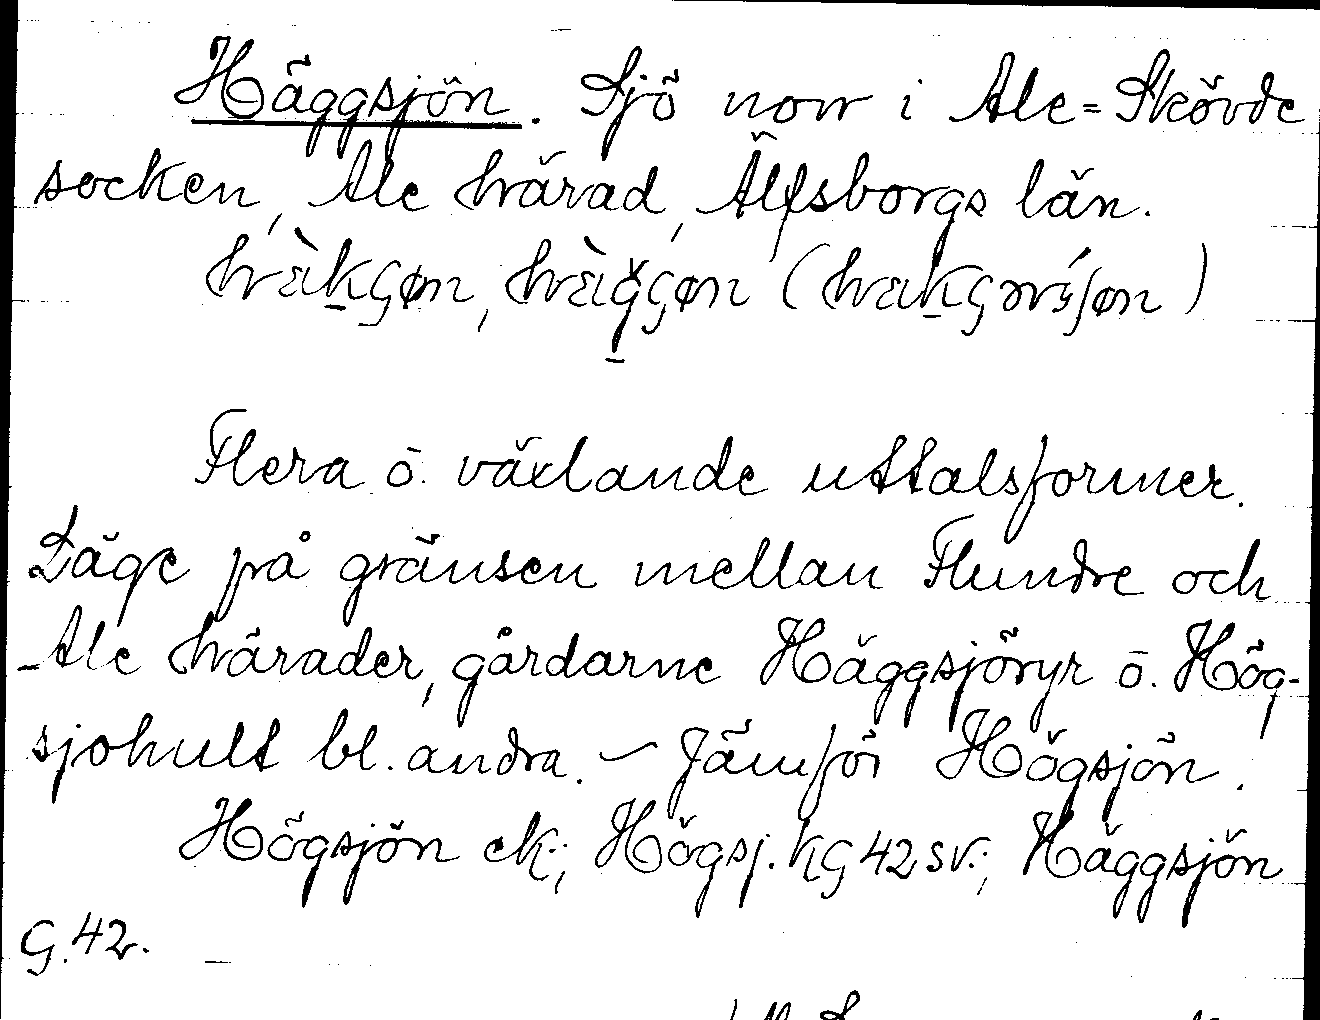 Häggsjön. Sjö norr i Ale=Skövde
socken, Ale härad, Älfsborgs län.
Flera o. växlande uttalsformer.
Läge på gränsen mellan Flundre och
Ale härader, gårdarne Häggsjöryr o. Hög-
sjöhult bl. andra. – Jämför Högsjön.
Högsjön ek.; Högsj. KG 42 SV.; Häggsjön
G. 42.